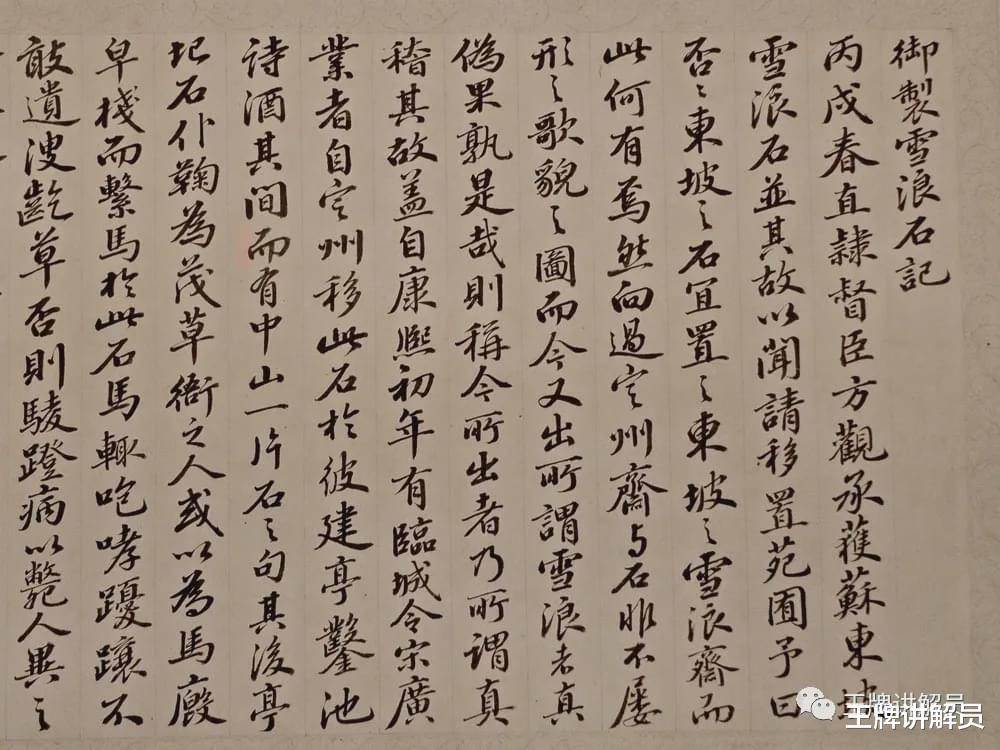 御製雪浪石記
丙戌春直隸督臣方觀承獲蘇東坡
雪浪石並其故以聞請移置苑囿予曰
否〻東坡之石宜置之東坡之雪浪齋而
此何有焉然向過定州齋与石非不屢
形之歌貌之圖而今又出所謂雪浪者真
偽果孰是哉則稱今所出者乃所謂真
稽其故盖自康熙初年有臨城令宋廣
業者自定州移此石於彼建亭鑿池
詩酒其間而有中山一片石之句其後亭
圮石仆鞠為茂草衙之人或以為馬廄
皁棧而繫馬於此石馬輒咆哮躟不
敢遺溲齕草否則䮚蹬病以斃人異之
王牌讲解员
王牌讲解员